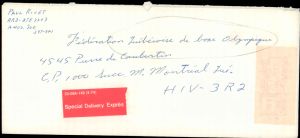 Paul Rivet
Fédération Québécoise de boxe Olympique
4545 Pierre de Coubertin
C.P. 1000 Succ M, Montréal Qué.
H1V-3R2
Special Delivery Exprès